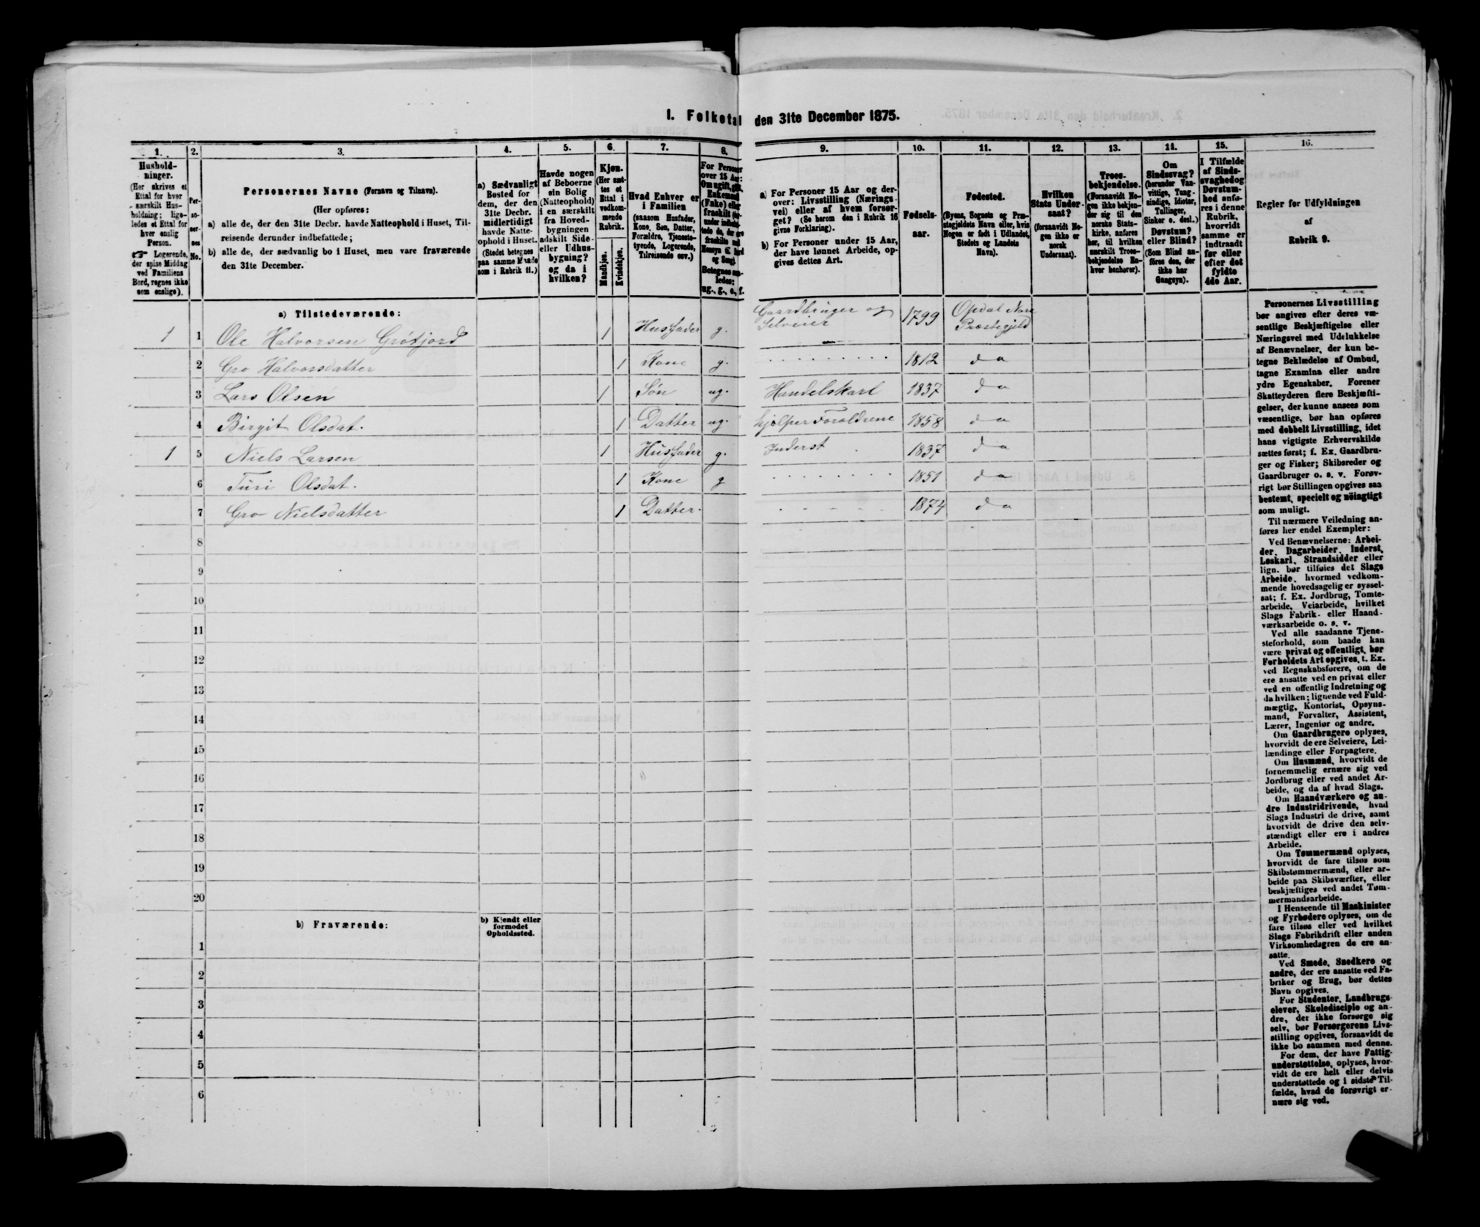 I. Folketal den 31te December 1875.
1. 2. 3. 4. 5. 6. 7. 8. 9. 10. 11. 12. 13. 14. 15. 16.
Husholdninger.
(Her skrives et Ettal for hver særskilt Husholdning; ligeledes et Ettal for hver enslig Person.
☞ Logerende, der spise Middag ved Familiens Bord, regnes ikke som enslige).
Personernes No.
Personernes Navne (Fornavn og Tilnavn).
(Her opføres:
a) alle de, der den 31te Decbr. havde Natteophold i Huset, Tilreisende derunder indbefattede;
b) alle de, der sædvanlig bo i Huset, men vare fraværende den 31te December.
a) Sædvanligt Bosted for dem, der den 31te Decbr. midlertidigt havde Natteophold i Huset. (Stedet betegnes paa samme Maade som i Rubrik 11.)
Havde nogen af Beboerne sin Bolig (Natteophold) i en særskilt fra Hovedbygningen adskilt Side- eller Udhusbygning? og da i hvilken?
Kjøn.
(Her sættes et Ettal i vedkommende Rubrik.
Mandkjøn. Kvindekjøn.
Hvad Enhver er i Familien
(saasom Husfader, Kone, Søn, Datter, Forældre, Tjenestetyende, Logerende, Tilreisende osv.)
For Personer over 15 Aar: Om ugift, gift,
ug., g., e., f.
a) For Personer 15 Aar og derover: Livsstilling (Næringsvei) eller af hvem forsørget? (Se herom den i Rubrik 16 givne Forklaring).
b) For Personer under 15 Aar, der have lønnet Arbeide, opgives dettes Art.
Fødselsaar.
Fødested.
(Byens, Sognets og Præstegjeldets Navn eller, hvis Nogen er født i Udlandet, Stedets og Landets Navn).
Hvilken Stats Undersaat?
(forsaavidt Nogen ikke er norsk Undersaat).
Troesbekjendelse.
(Forsaavidt Nogen ikke bekjender sig til den norske Statskirke, anføres her, til hvilken særskilt Troesbekjendelse Enhver henhører).
Om Sindssvag? (herunder Vanvittige, Tungsindige, Idioter, Tullinger, Sinker o. desl.)
Døvstum? eller Blind? (Som Blind anføres den, der ikke har Gangsyn).
I Tilfælde af Sindssvaghed og Døvstumhed anføres i denne Rubrik, hvorvidt samme er indtraadt før eller efter det fyldte 4de Aar.
Regler for Udfyldningen
af
Rubrik 9.
a) Tilstedeværende:
1 1 Ole Halvorsen Grøtjord 1 Husfader g. Gaardbruger og Selveier 1799 Opdal Nore Præstegjeld
2 Gro Halvorsdatter 1 Kone g. 1812 do
3 Lars Olsen 1 Søn ug. Handelskarl 1837 do
4 Birgit Olsdat. 1 Datter ug. hjelper Foreldrene 1858 do
1 5 Niels Larsen 1 Husfader g. Inderst 1837 do
6 Turi Olsdat. 1 Kone g 1851 do
7 Gro Nielsdatter 1 Datter. 1874 do
8
9
10
11
12
13
14
15
16
17
18
19
20
b) Fraværende:
b) Kjendt eller formodet Opholdssted.
1
2
3
4
5
6
Personernes Livsstilling
bør angives efter deres væ-
sentlige Beskjæftigelse eller
Næringsvei med Udelukkelse
af Benævnelser, der kun be-
tegne Beklædelse af Ombud,
tagne Examina eller andre
ydre Egenskaber. Forener
Skatteyderen flere Beskjæfti-
gelser, der kunne ansees som
væsentlige, bør han opføres
med dobbelt Livsstilling, idet
hans vigtigste Erhvervskilde
sættes først; f. Ex. Gaardbru-
ger og Fisker; Skibsreder og
Gaardbruger o. s. v. Forøv-
rigt bør Stillingen opgives saa
bestemt, specielt og nöiagtigt
som muligt.
Til nærmere Veiledning an-
føres her endel Exempler:
Ved Benævnelserne: Arbei-
der, Dagarbeider, Inderst,
Løskarl, Strandsidder eller
lign. bør tilføies det Slags
Arbeide, hvormed vedkom-
mende hovedsagelig er syssel-
sat; f. Ex. Jordbrug, Tomte-
arbeide, Veiarbeide, hvilket
Slags Fabrik- eller Haand-
værksarbeide o. s. v.
Ved alle saadanne Tjene-
steforhold, som baade kan
være privat og offentligt, bør
Forholdets Art opgives, t. Ex.
ved Regnskabsførere, om de
ere ansatte ved en privat eller
ved en offentlig Indretning og
da hvilken; lignende ved Fuld-
mægtig, Kontorist, Opsyns-
mand, Forvalter, Assistent,
Lærer, Ingeniør og andre.
Om Gaardbrugere oplyses,
hvorvidt de ere Selveiere, Lei-
lændinge eller Forpagtere.
Om Husmænd, hvorvidt de
fornemmelig ernære sig ved
Jordbrug eller ved andet Ar-
beide, og da af hvad Slags.
Om Haandværkere og an-
dre Industridrivende, hvad
Slags Industri de drive, samt
hvorvidt de drive den selv-
stændigt eller ere i andres
Arbeide.
Om Tømmermænd oplyses,
hvorvidt de fare tilsøs som
Skibstømmermænd, eller ar-
beide paa Skibsværfter, eller
beskjæftiges ved andet Tøm-
mermandsarbeide.
I Henseende til Maskinister
og Fyrbødere oplyses, om de
fare tilsøs eller ved hvilket
Slags Fabrikdrift eller anden
Virksomhedsgren de ere an-
satte.
Ved Smede, Snedkere og
andre, der ere ansatte ved Fa-
briker og Brug, bør dettes
Navn opgives.
For Studenter, Landbrugs-
elever, Skoledisciple og an-
dre, der ikke forsørge sig
selv, bør Forsørgerens Livs-
stilling opgives, forsaavidt de
ikke bo sammen med denne.
For dem, der have Fattig-
understøttelse, oplyses, hvor-
vidt de ere helt eller delvis
understøttede og i sidste Til-
fælde, hvad de forøvrigt er-
nære sig ved.